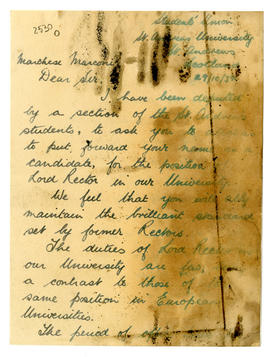 2530
Students' Union
St. Andrews University
St. Andrews
Scotland
29/10/3
Marchese Marconi
Dear Sir,
I have been deputed
by a section of the St. Andrews
students, to ask you to
to put forward your name as a
candidate, for the position
Lord Rector in our University.
We feel that you will ably
maintain the brilliant standard
set by former Rectors.
The duties of Lord Rector in
our University are
a contrast to those of
same position in European
Universities.
The period of